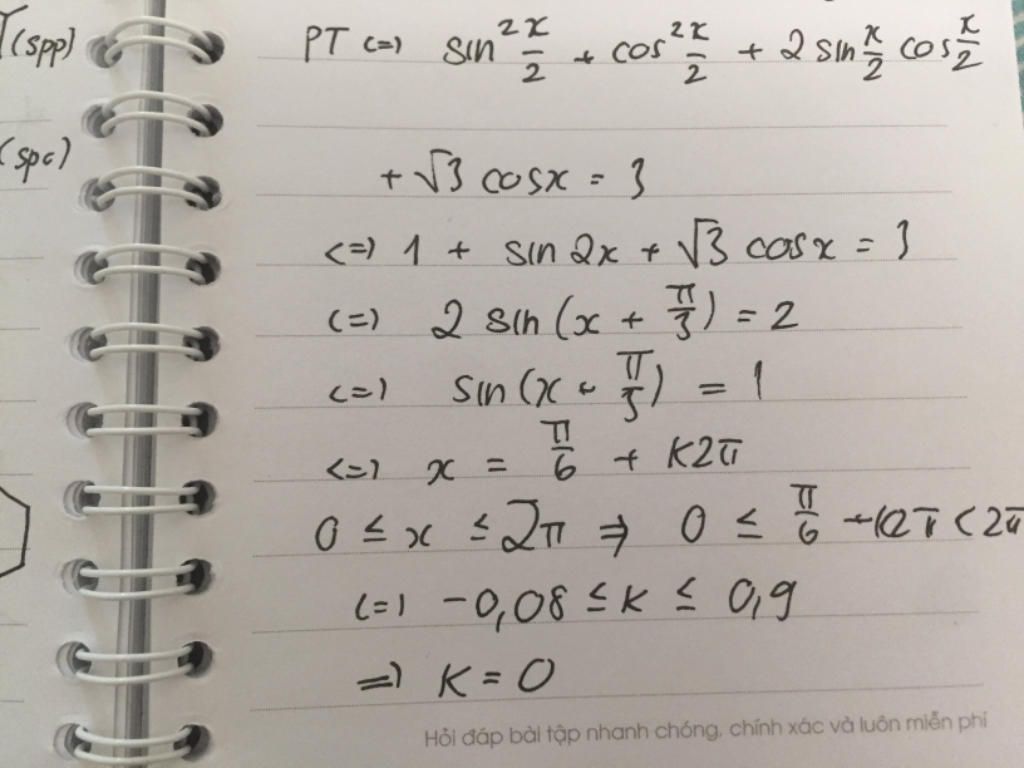 (spp)
(spc)
PT <=> sin²x/2 + cos²x/2 + 2 sin x/2 cos x/2
+ √3 cosx = 3
<=> 1 + sin 2x + √3 cosx = 3
<=> 2 sin (x + π/3) = 2
<=> sin (x + π/3) = 1
<=> x = π/6 + K2π
0 ≤ x ≤ 2π => 0 ≤ π/6 + k2π < 2π
<=> -0,08 ≤ K ≤ 0,9
=> K = 0
Hỏi đáp bài tập nhanh chóng, chính xác và luôn miễn phí